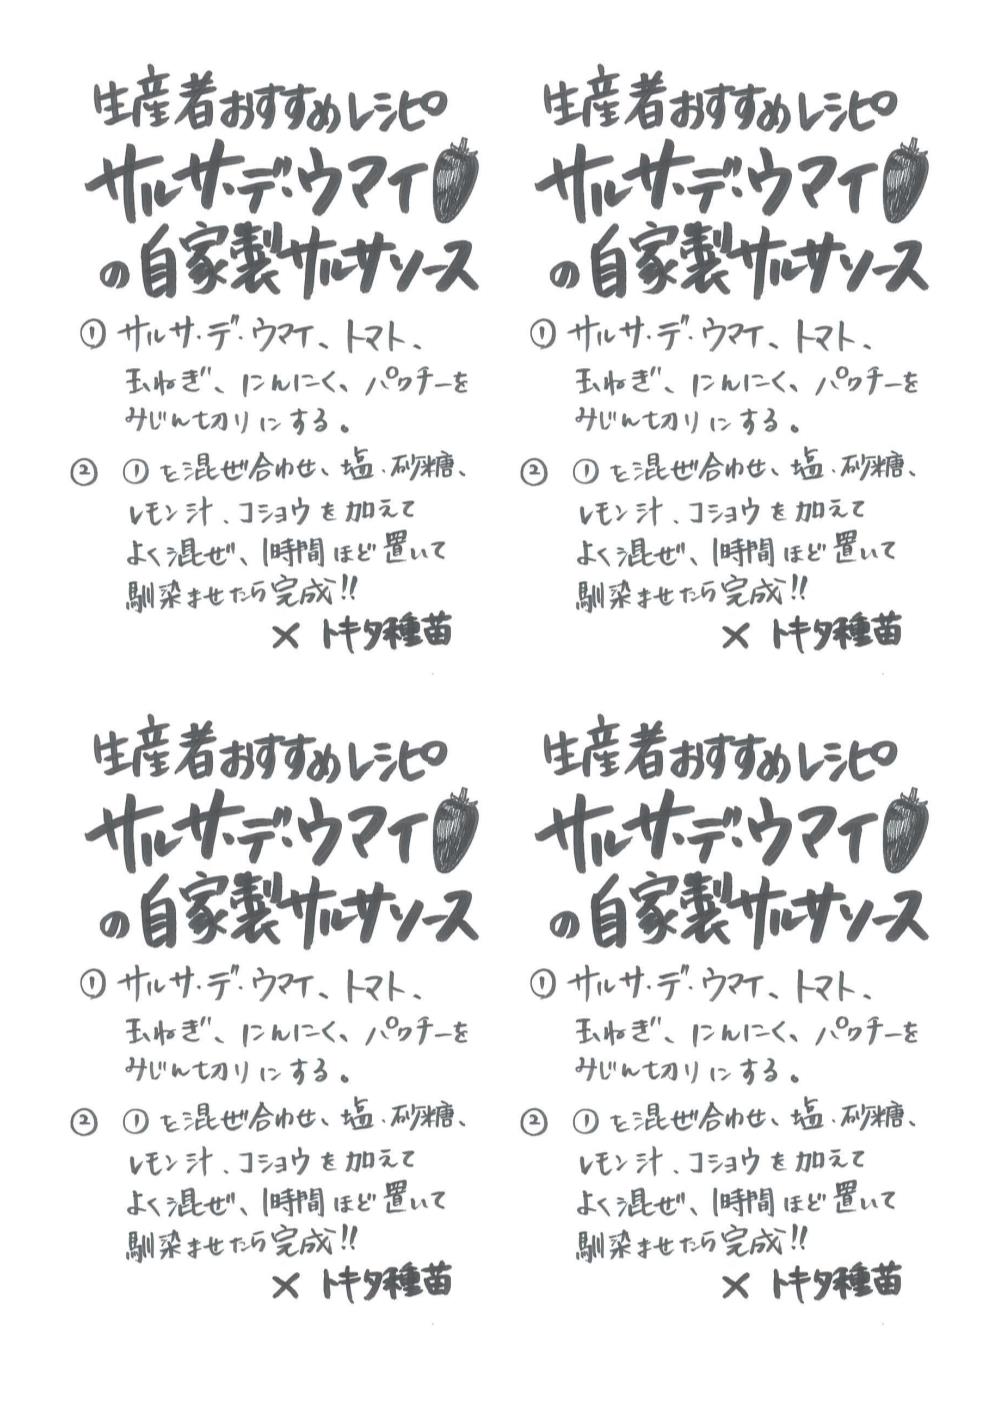 生産者おすすめレシピ
サルサ・デ・ウマイ
の自家製サルサソース
① サルサ・デ・ウマイ、トマト、
玉ねぎ、にんにく、パクチーを
みじん切りにする。
② ①を混ぜ合わせ、塩、砂糖、
レモン汁、コショウを加えて
よく混ぜ、1時間ほど置いて
馴染ませたら完成!!
× トキタ種苗
生産者おすすめレシピ
サルサ・デ・ウマイ
の自家製サルサソース
① サルサ・デ・ウマイ、トマト、
玉ねぎ、にんにく、パクチーを
みじん切りにする。
② ①を混ぜ合わせ、塩、砂糖、
レモン汁、コショウを加えて
よく混ぜ、1時間ほど置いて
馴染ませたら完成!!
× トキタ種苗
生産者おすすめレシピ
サルサ・デ・ウマイ
の自家製サルサソース
① サルサ・デ・ウマイ、トマト、
玉ねぎ、にんにく、パクチーを
みじん切りにする。
② ①を混ぜ合わせ、塩、砂糖、
レモン汁、コショウを加えて
よく混ぜ、1時間ほど置いて
馴染ませたら完成!!
× トキタ種苗
生産者おすすめレシピ
サルサ・デ・ウマイ
の自家製サルサソース
① サルサ・デ・ウマイ、トマト、
玉ねぎ、にんにく、パクチーを
みじん切りにする。
② ①を混ぜ合わせ、塩、砂糖、
レモン汁、コショウを加えて
よく混ぜ、1時間ほど置いて
馴染ませたら完成!!
× トキタ種苗